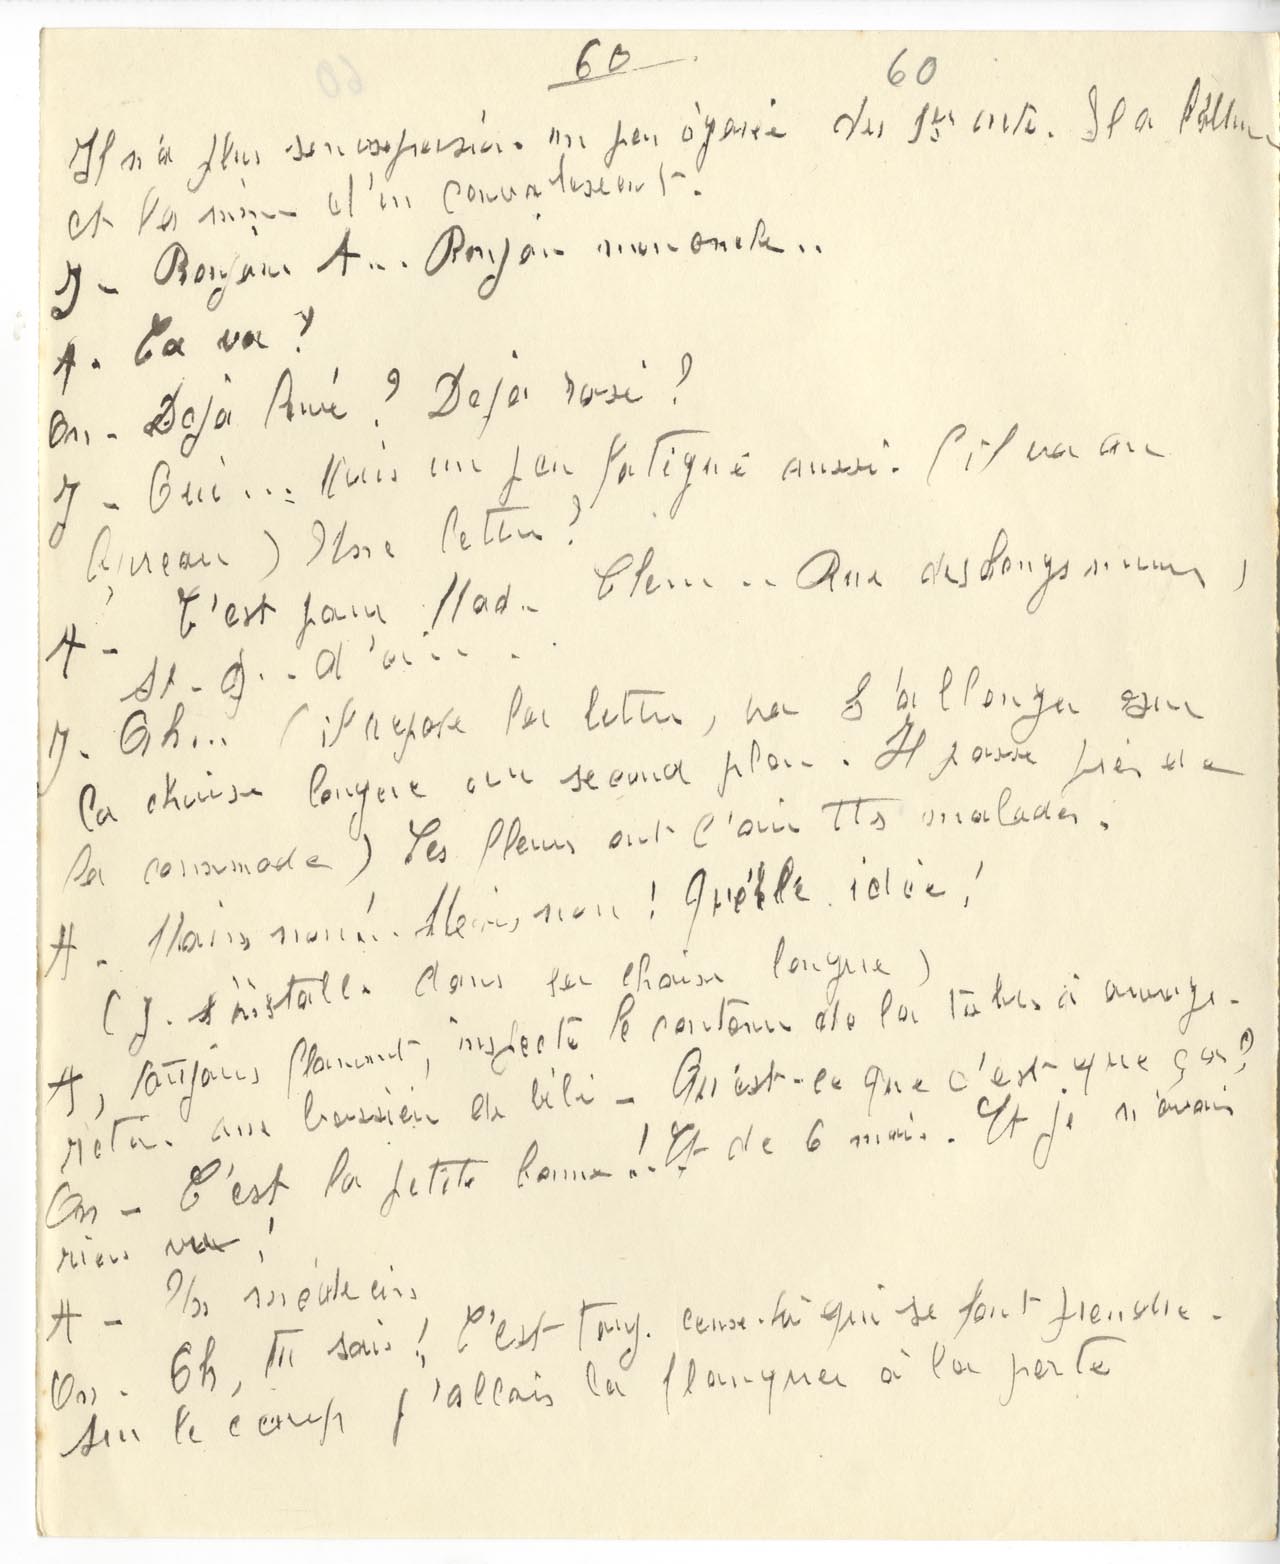 60 60
Il n'a plus son expression un peu égarée des 1ers acte. Il a l'allure
et la mine d'un convalescent.
J - Bonjour A... Bonjour mon oncle..
A. Ca va?
On - Déjà levé? Deja rasé?
J - Oui... Mais un peu fatigué aussi. (il va au
bureau) Une lettre?
A - C'est pour Mad.. Clem.. Rue des longs murs,
St - J... d'
J. Ah... (il repose la lettre, va s'allonger sur
la chaise longue au second plan. Il passe près de
la commode) Les fleurs ont l'air tts malades.
A. Mais non! Mais non! Quelle idée!
(J. s'installe dans sa chaise longue)
A, toujours flanant, inspecte le contenu de la table à ouvrage.
de bébé - Qu'est-ce que c'est que ça?
On - C'est la petite bonne!.. Et de 6 mois. Et je n'avais
rien vu!
A - Un médecin
On. Oh, tu sais! C'est touj. ceux-là qui se font prendre.
Sur le coup j'allais la flanquer à la porte